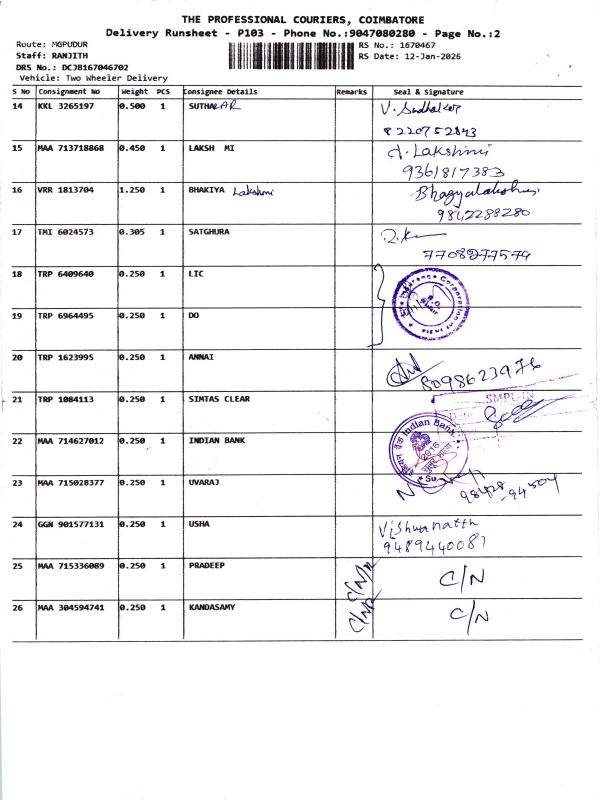 THE PROFESSIONAL COURIERS, COIMBATORE
Delivery Runsheet - P103 - Phone No.:9047080280 - Page No.:2
Route: MGPUDUR
RS No.: 1670467
Staff: RANJITH
RS Date: 12-Jan-2026
DRS No.: DCJB167046702
Vehicle: Two Wheeler Delivery
S No Consignment No Weight PCS Consignee Details Remarks Seal & Signature
14 KKL 3265197 0.500 1 SUTHAKAR V. Sudhakar
8220752843
15 MAA 713718868 0.450 1 LAKSH MI d. Lakshmi
9361817383
16 VRR 1813704 1.250 1 BHAKIYA Lakshmi Bhagyalakshmi
9842288280
17 TMI 6024573 0.305 1 SATGHURA
7708277579
18 TRP 6409640 0.250 1 LIC Insurance Corporation
19 TRP 6964495 0.250 1 DO
20 TRP 1623995 0.250 1 ANNAI
8098623976
21 TRP 1084113 0.250 1 SIMTAS CLEAR
22 MAA 714627012 0.250 1 INDIAN BANK Indian Bank
23 MAA 715028377 0.250 1 UVARAJ
98428-94504
24 GGN 901577131 0.250 1 USHA Vishwanatth
9489440081
25 MAA 715336089 0.250 1 PRADEEP C/N/N C/N
26 MAA 304594741 0.250 1 KANDASAMY C/NR C/N